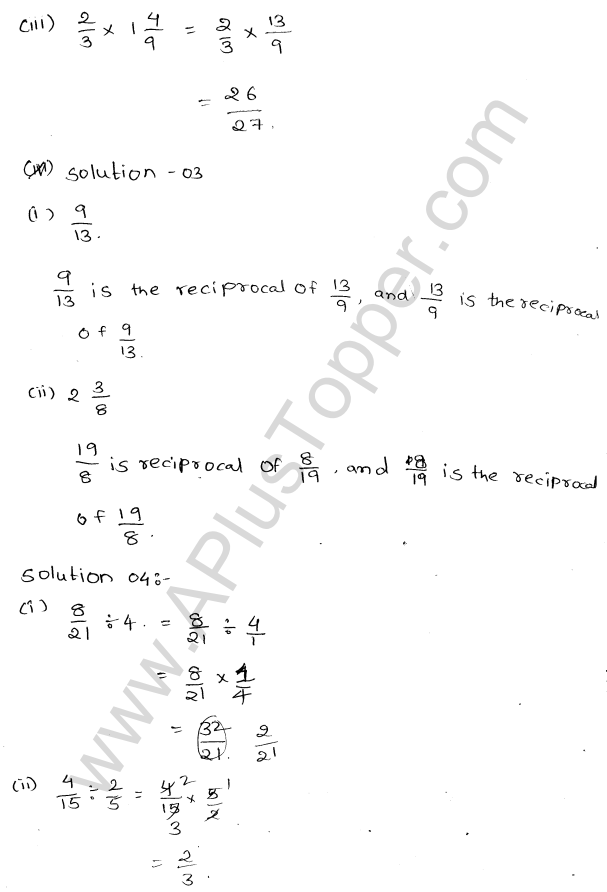 (iii) 2/3 × 1 4/9 = 2/3 × 13/9
= 26/27.
(iii) Solution - 03
(i) 9/13.
9/13 is the reciprocal of 13/9, and 13/9 is the reciprocal
of 9/13.
(ii) 2 3/8
19/8 is reciprocal of 8/19, and 8/19 is the reciprocal
of 19/8.
Solution 04:-
(i) 8/21 ÷ 4. = 8/21 ÷ 4/1
= 8/21 × 1/4
= 32/21. 2/21
(ii) 4/15 ÷ 2/5 = 4/15 × 5/2 2 1 3
= 2/3.
www.APlusTopper.com